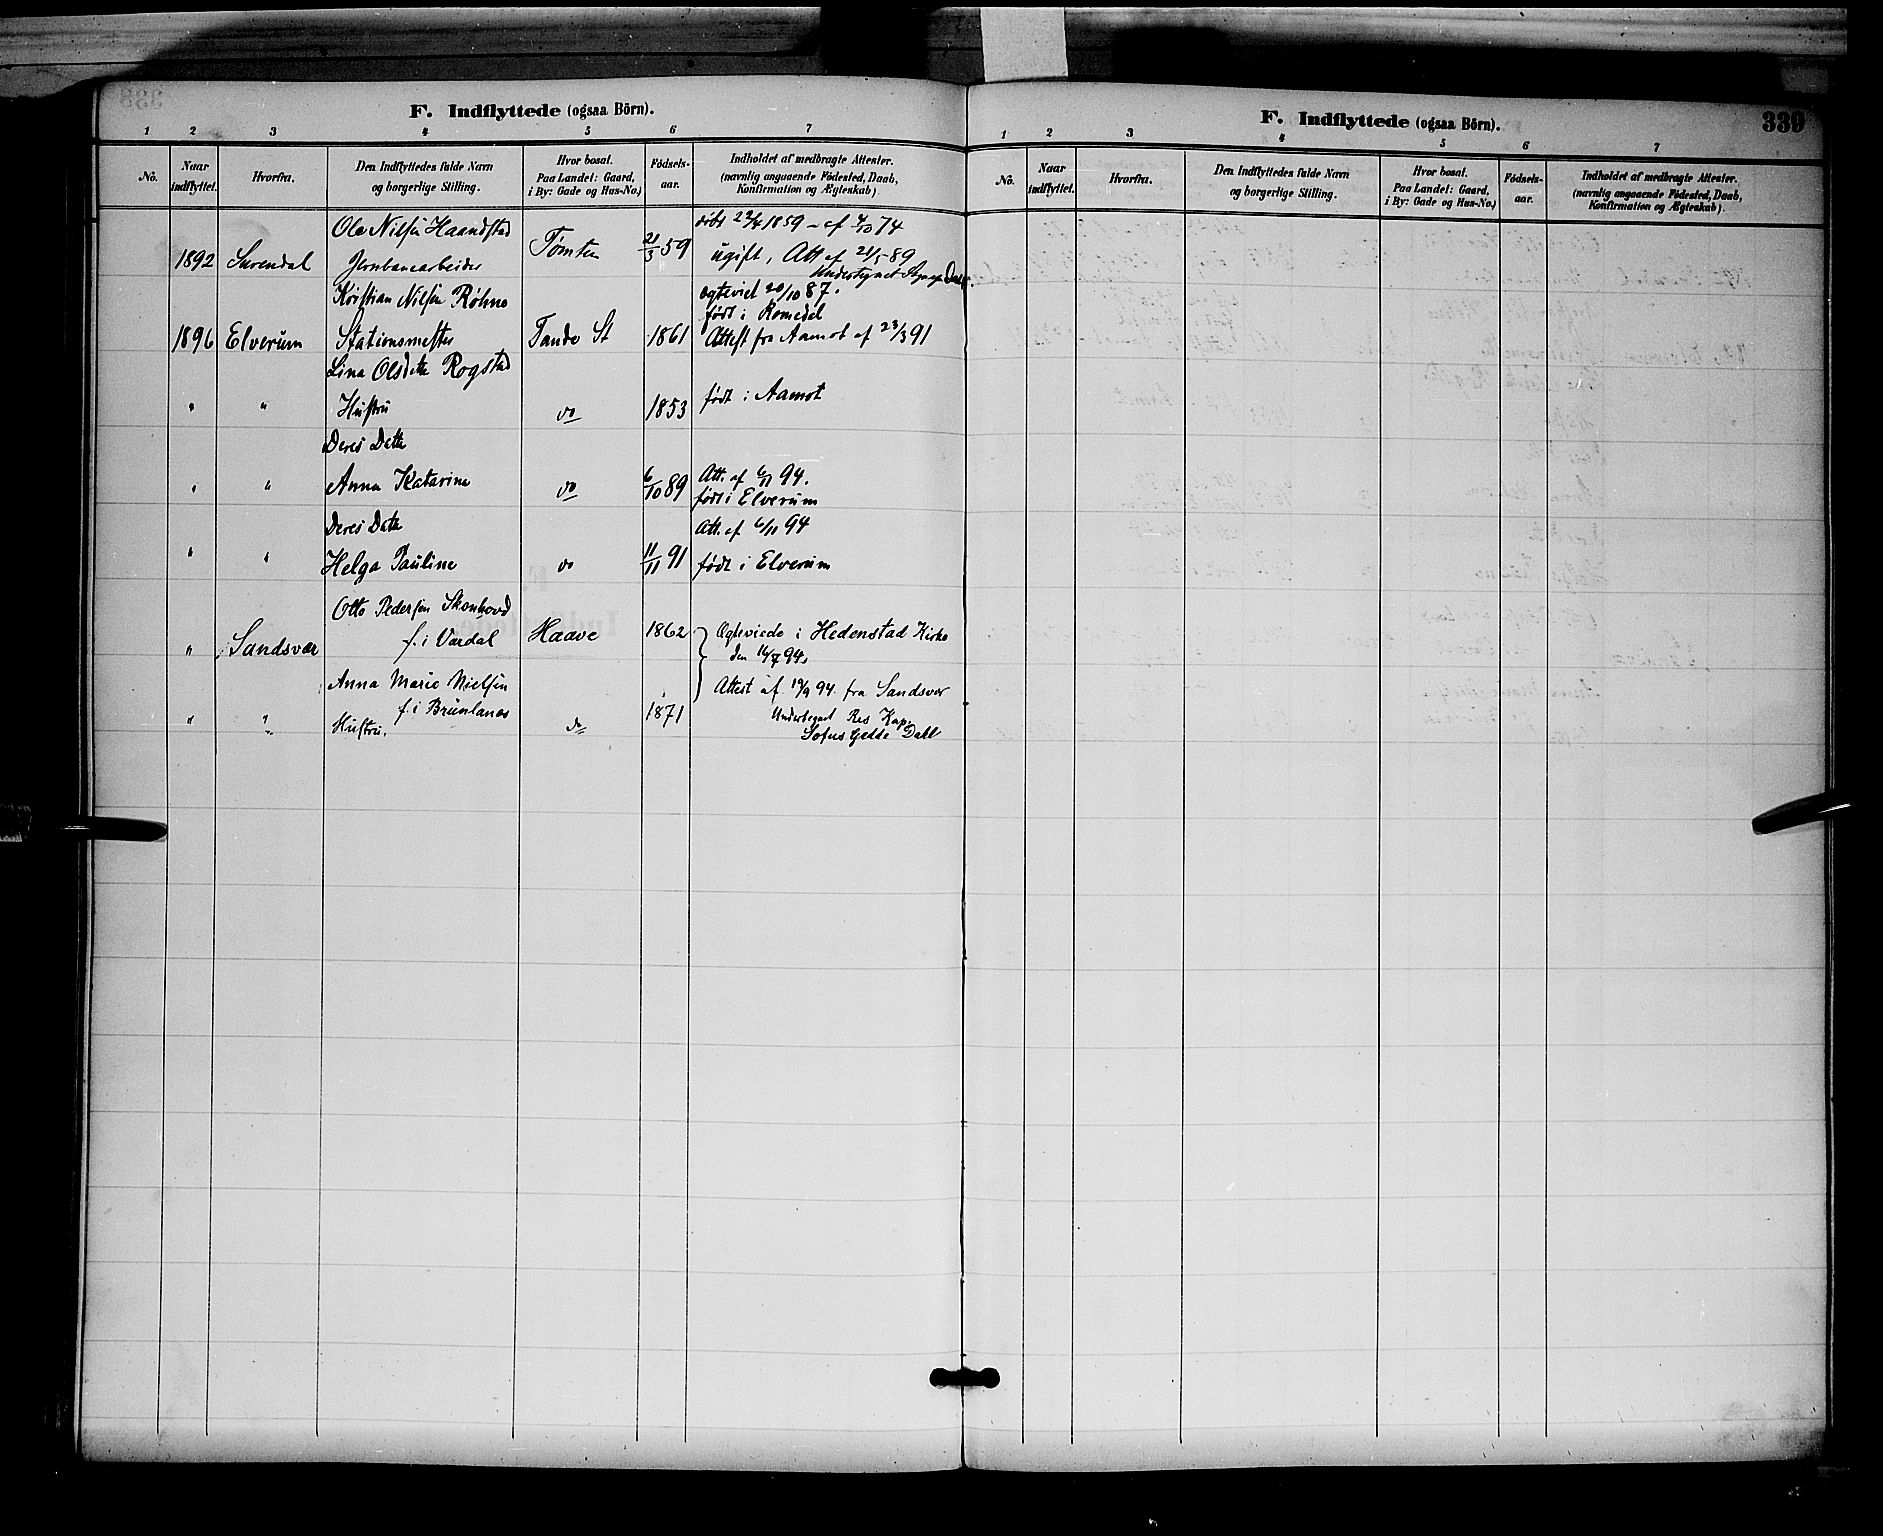 F. Indflyttede (ogsaa Börn).
1 2 3 4 5 6 7
No. Naar indflyttet. Hvorfra. Den Indflyttedes fulde Navn og borgerlige Stilling. Hvor bosat. Paa Landet: Gaard, i By: Gade og Hus-No.) Fødsels-aar. Indholdet af medbragte Attester. (navnlig angaaende Fødested, Daab, Konfirmation og Ægteskab).
Ole Nilsen Haandstad døbt 22/4 1859 - cf 4/10 74
1892 Surendal Jernbanearbeider Tømten 21/3 59 ugift, Att af 21/5 89
Undertegnet
Kristian Nilsen Røhne ægteviet 20/10 87.
født i Romedal
1896 Elverum Stationsmester Tande St 1861 Attest fra Aamot af 23/3 91
Lina Olsdtr Rogstad
" " Hustru do 1853 født i Aamot
Deres Datter
" " Anna Katarina do 6/10 89 Att. af 6/11 94.
født i Elverum
Deres Datter Att. af 6/11 94
" " Helga Pauline do 11/11 91 født i Elverum
Otto Pedersen Skonhovd
" Sandsvær f. i Vardal Haave 1862 Ægteviede i Hedenstad Kirke
den 16/7 94,
Anna Marie Nielsen Attest af 19/9 94 fra Sandsvær
f. i Brunlanes
" " Hustru. do 1871 Undertegnet Res Kap.
Sofus Gedde Dahl
F. Indflyttede (ogsaa Börn). 339
1 2 3 4 5 6 7
No. Naar indflyttet. Hvorfra. Den Indflyttedes fulde Navn og borgerlige Stilling. Hvor bosat. Paa Landet: Gaard, i By: Gade og Hus-No.) Fødsels-aar. Indholdet af medbragte Attester. (navnlig angaaende Fødested, Daab, Konfirmation og Ægteskab).